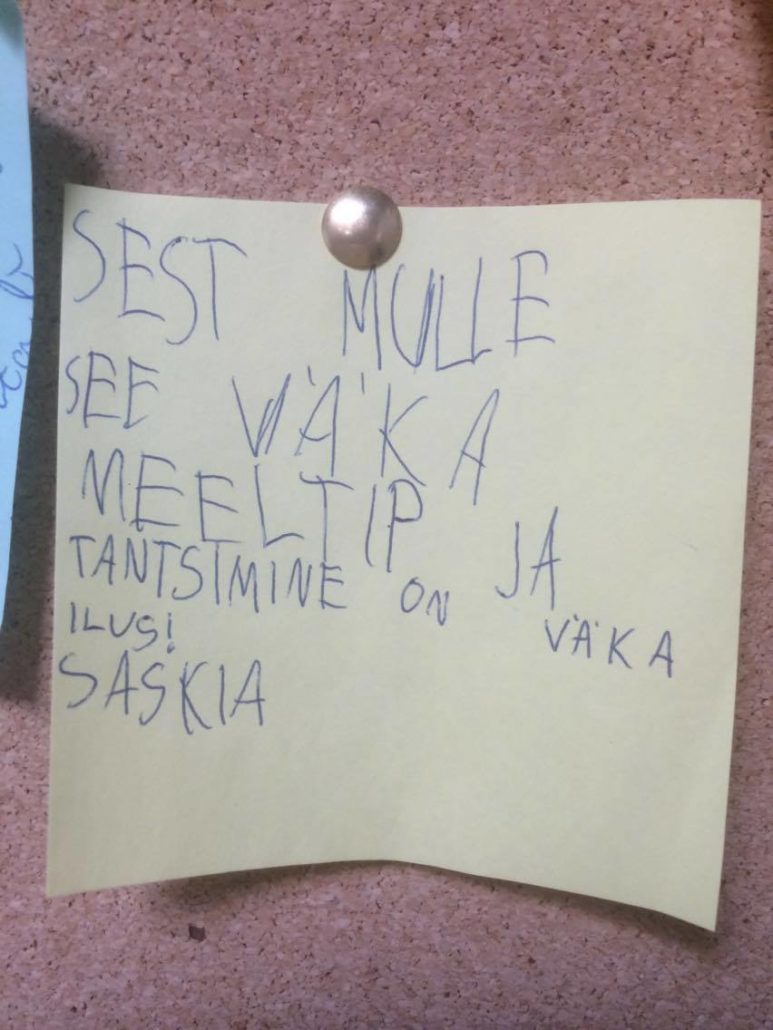 SEST MULLE
SEE VÄKA
MEELTIP JA
TANTSIMINE ON VÄKA
ILUS!
SASKIA